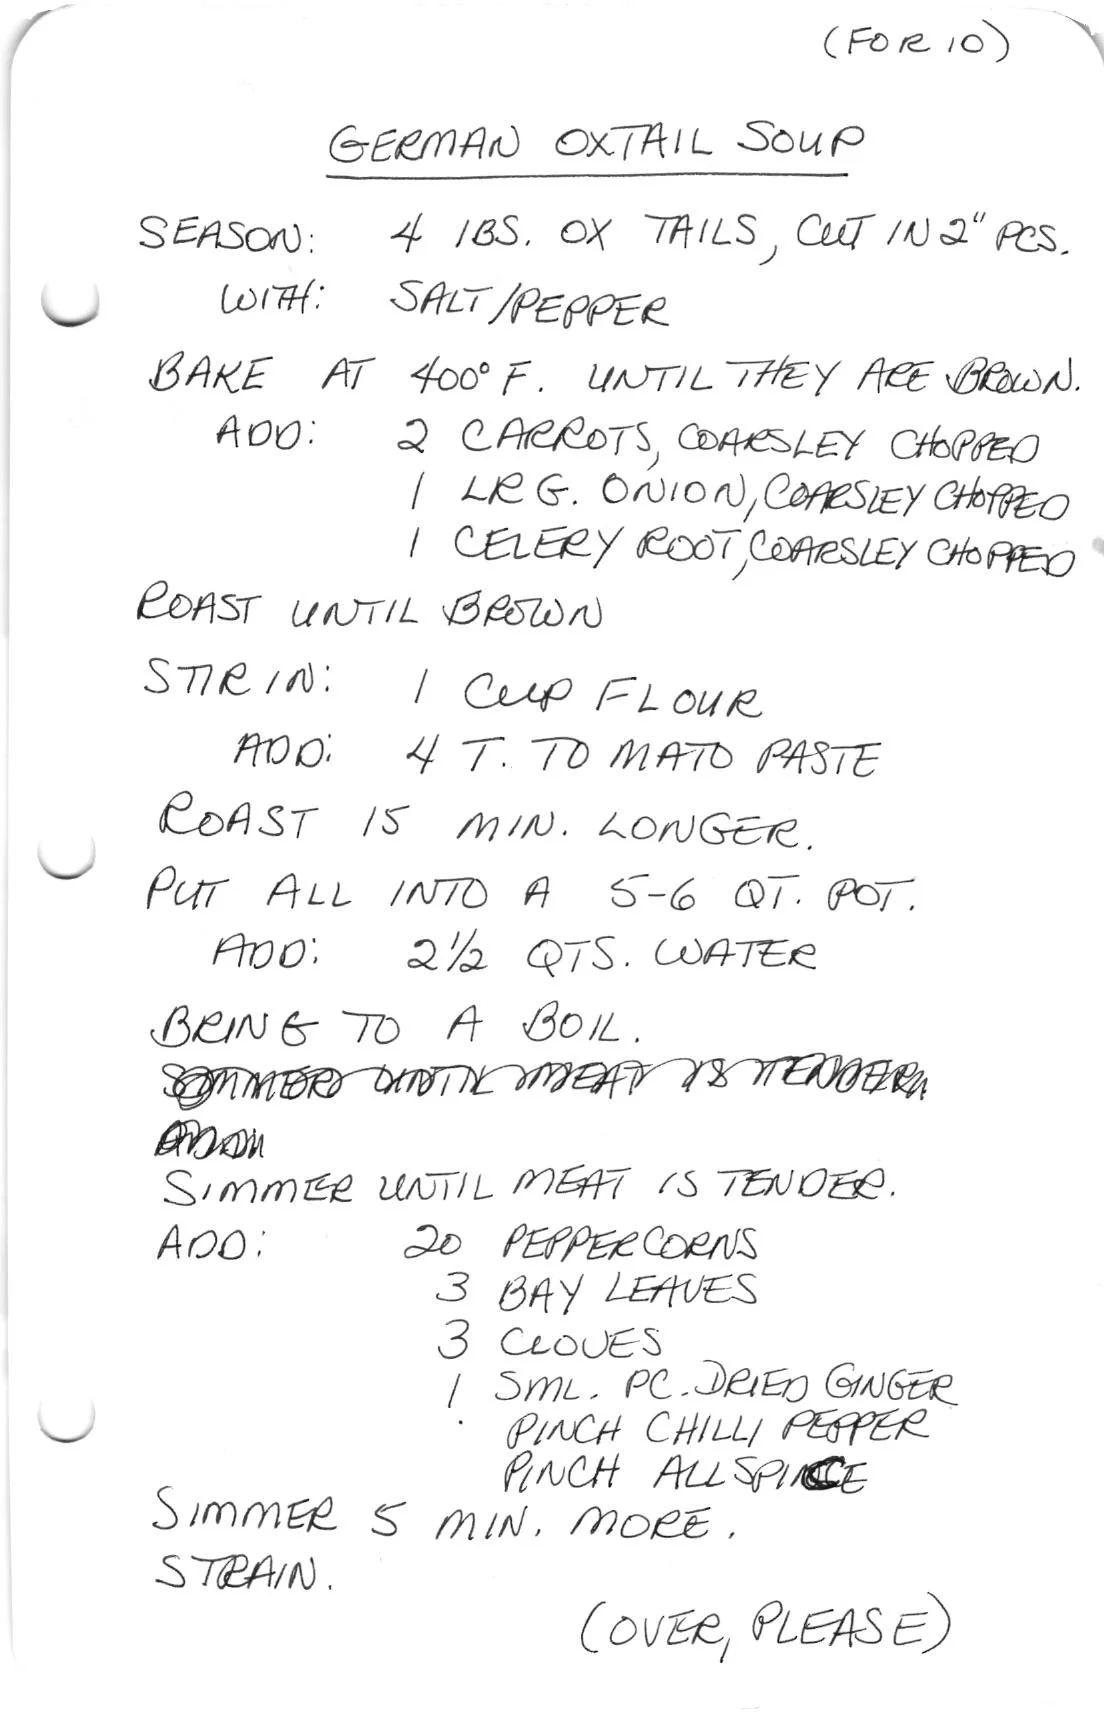 (FOR 10)
GERMAN OXTAIL SOUP
SEASON: 4 lBS. OX TAILS, CUT IN 2" PCS.
WITH: SALT/PEPPER
BAKE AT 400° F. UNTIL THEY ARE BROWN.
ADD: 2 CARROTS, COARSLEY CHOPPED
1 LRG. ONION, COARSLEY CHOPPED
1 CELERY ROOT, COARSLEY CHOPPED
ROAST UNTIL BROWN
STIR IN: 1 CUP FLOUR
ADD: 4 T. TOMATO PASTE
ROAST 15 MIN. LONGER.
PUT ALL INTO A 5-6 QT. POT.
ADD: 2 1/2 QTS. WATER
BRING TO A BOIL.
SIMMER UNTIL MEAT IS TENDER.
SIMMER UNTIL MEAT IS TENDER.
ADD: 20 PEPPERCORNS
3 BAY LEAVES
3 CLOVES
1 SML. PC. DRIED GINGER
PINCH CHILLI PEPPER
PINCH ALLSPICE
SIMMER 5 MIN. MORE.
STRAIN.
(OVER, PLEASE)